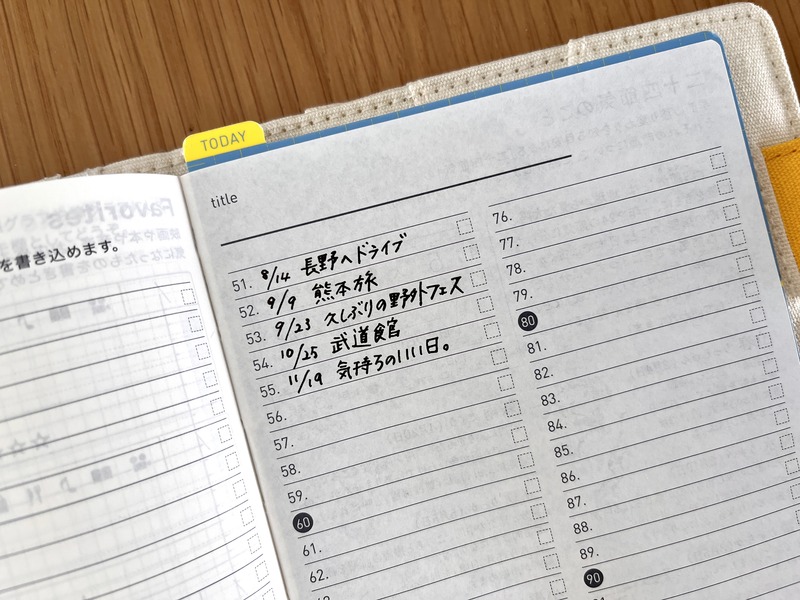 TODAY
title
Favorites
を書き込めます。
51. 8/14 長野へドライブ
52. 9/9 熊本旅
53. 9/23 久しぶりの野外フェス
54. 10/25 武道館
55. 11/19 気持ちの1111日。
56.
57.
58.
59.
60
61.
62.
76.
77.
78.
79.
80
81.
82.
83.
84.
85.
86.
87.
88.
89.
90